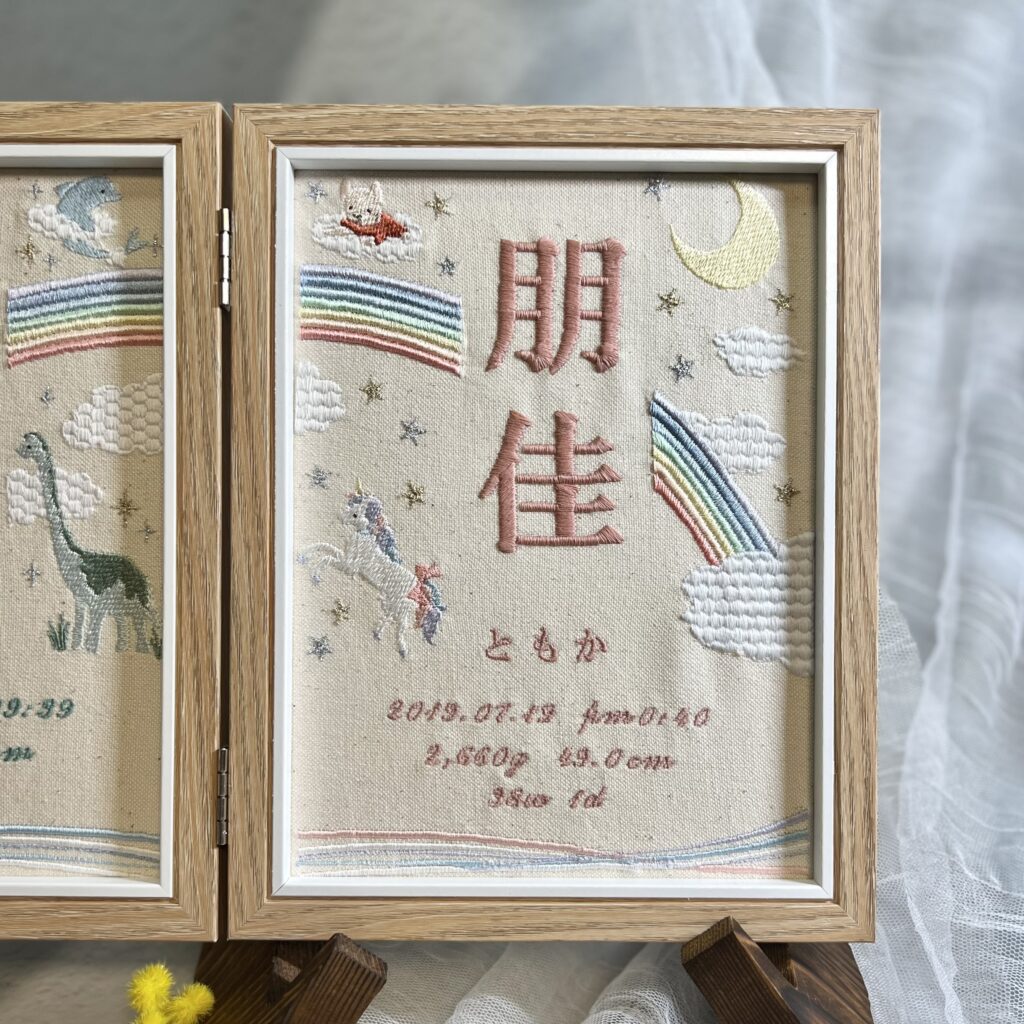 朋
佳
ともか
2019.07.19 pm0:40
2,660g 49.0cm
38w 1d